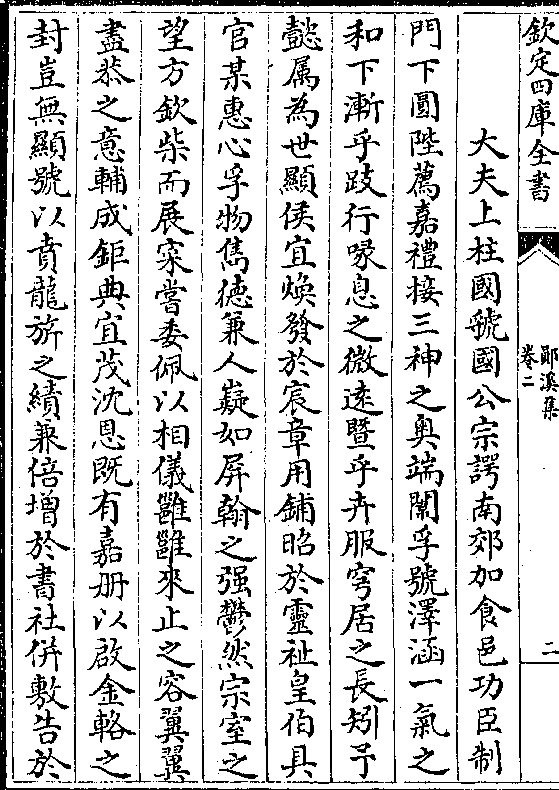 欽定四庫全書
鄖溪集
卷二
二
大夫上柱國虢國公宗諤南郊加食邑功臣制
門下圜陛薦嘉禮接三神之奧端闈孚號澤涵一氣之
和下漸乎跂行喙息之微逺暨乎卉服穹居之長矧予
懿属為世顯侯宜煥發於宸章用鋪昭於靈祉皇伯具
官某惠心孚物雋德兼人嶷如屏翰之强鬱然宗室之
望方欽柴而展寀嘗委佩以相儀雝雝來止之容翼翼
盡恭之意輔成鉅典宜茂沈恩既有嘉册以啟金輅之
封豈無顯號以賁龍旂之績兼倍增於書社併敷告於